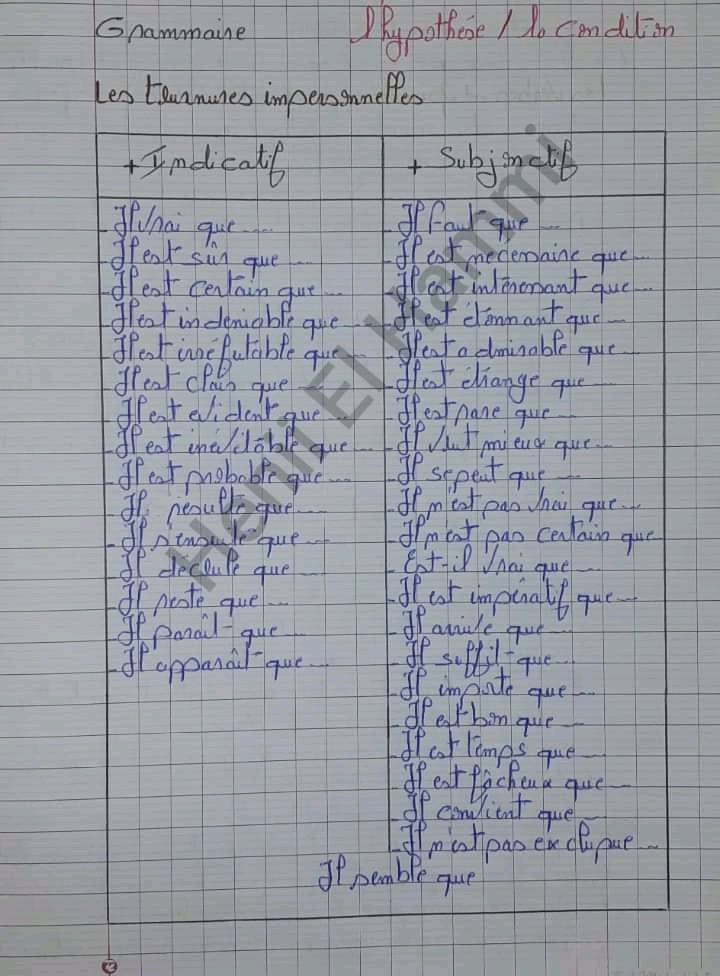 Grammaire l'hypothése / la condition
Les tournures impersonnelles
+ Indicatif
- Il vrai que ....
- Il est sûr que ...
- Il est certain que ...
- Il est indeniable que ...
- Il est irréfutable que ...
- Il est clair que ...
- Il est evident que ...
- Il est inévitable que ...
- Il est probable que ...
- Il résulte que ...
- Il s'ensuit que ...
- Il découle que ...
- Il reste que ...
- Il paraît que ...
- Il apparaît que ...
+ Subjonctif
- Il faut que ...
- Il est necessaire que ...
- Il est intéressant que ...
- Il est étonnant que ...
- Il est admirable que ...
- Il est étrange que ...
- Il est rare que ...
- Il vaut mieux que ...
- Il se peut que ...
- Il n'est pas vrai que ...
- Il n'est pas certain que
- Est-il vrai que ...
- Il est impératif que ...
- Il arrive que ...
- Il suffit que ...
- Il importe que ...
- Il est bon que ...
- Il est temps que ...
- Il est fâcheux que ...
- Il convient que ...
- Il n'est pas exclu que ...
Il semble que
Henri El Hammi